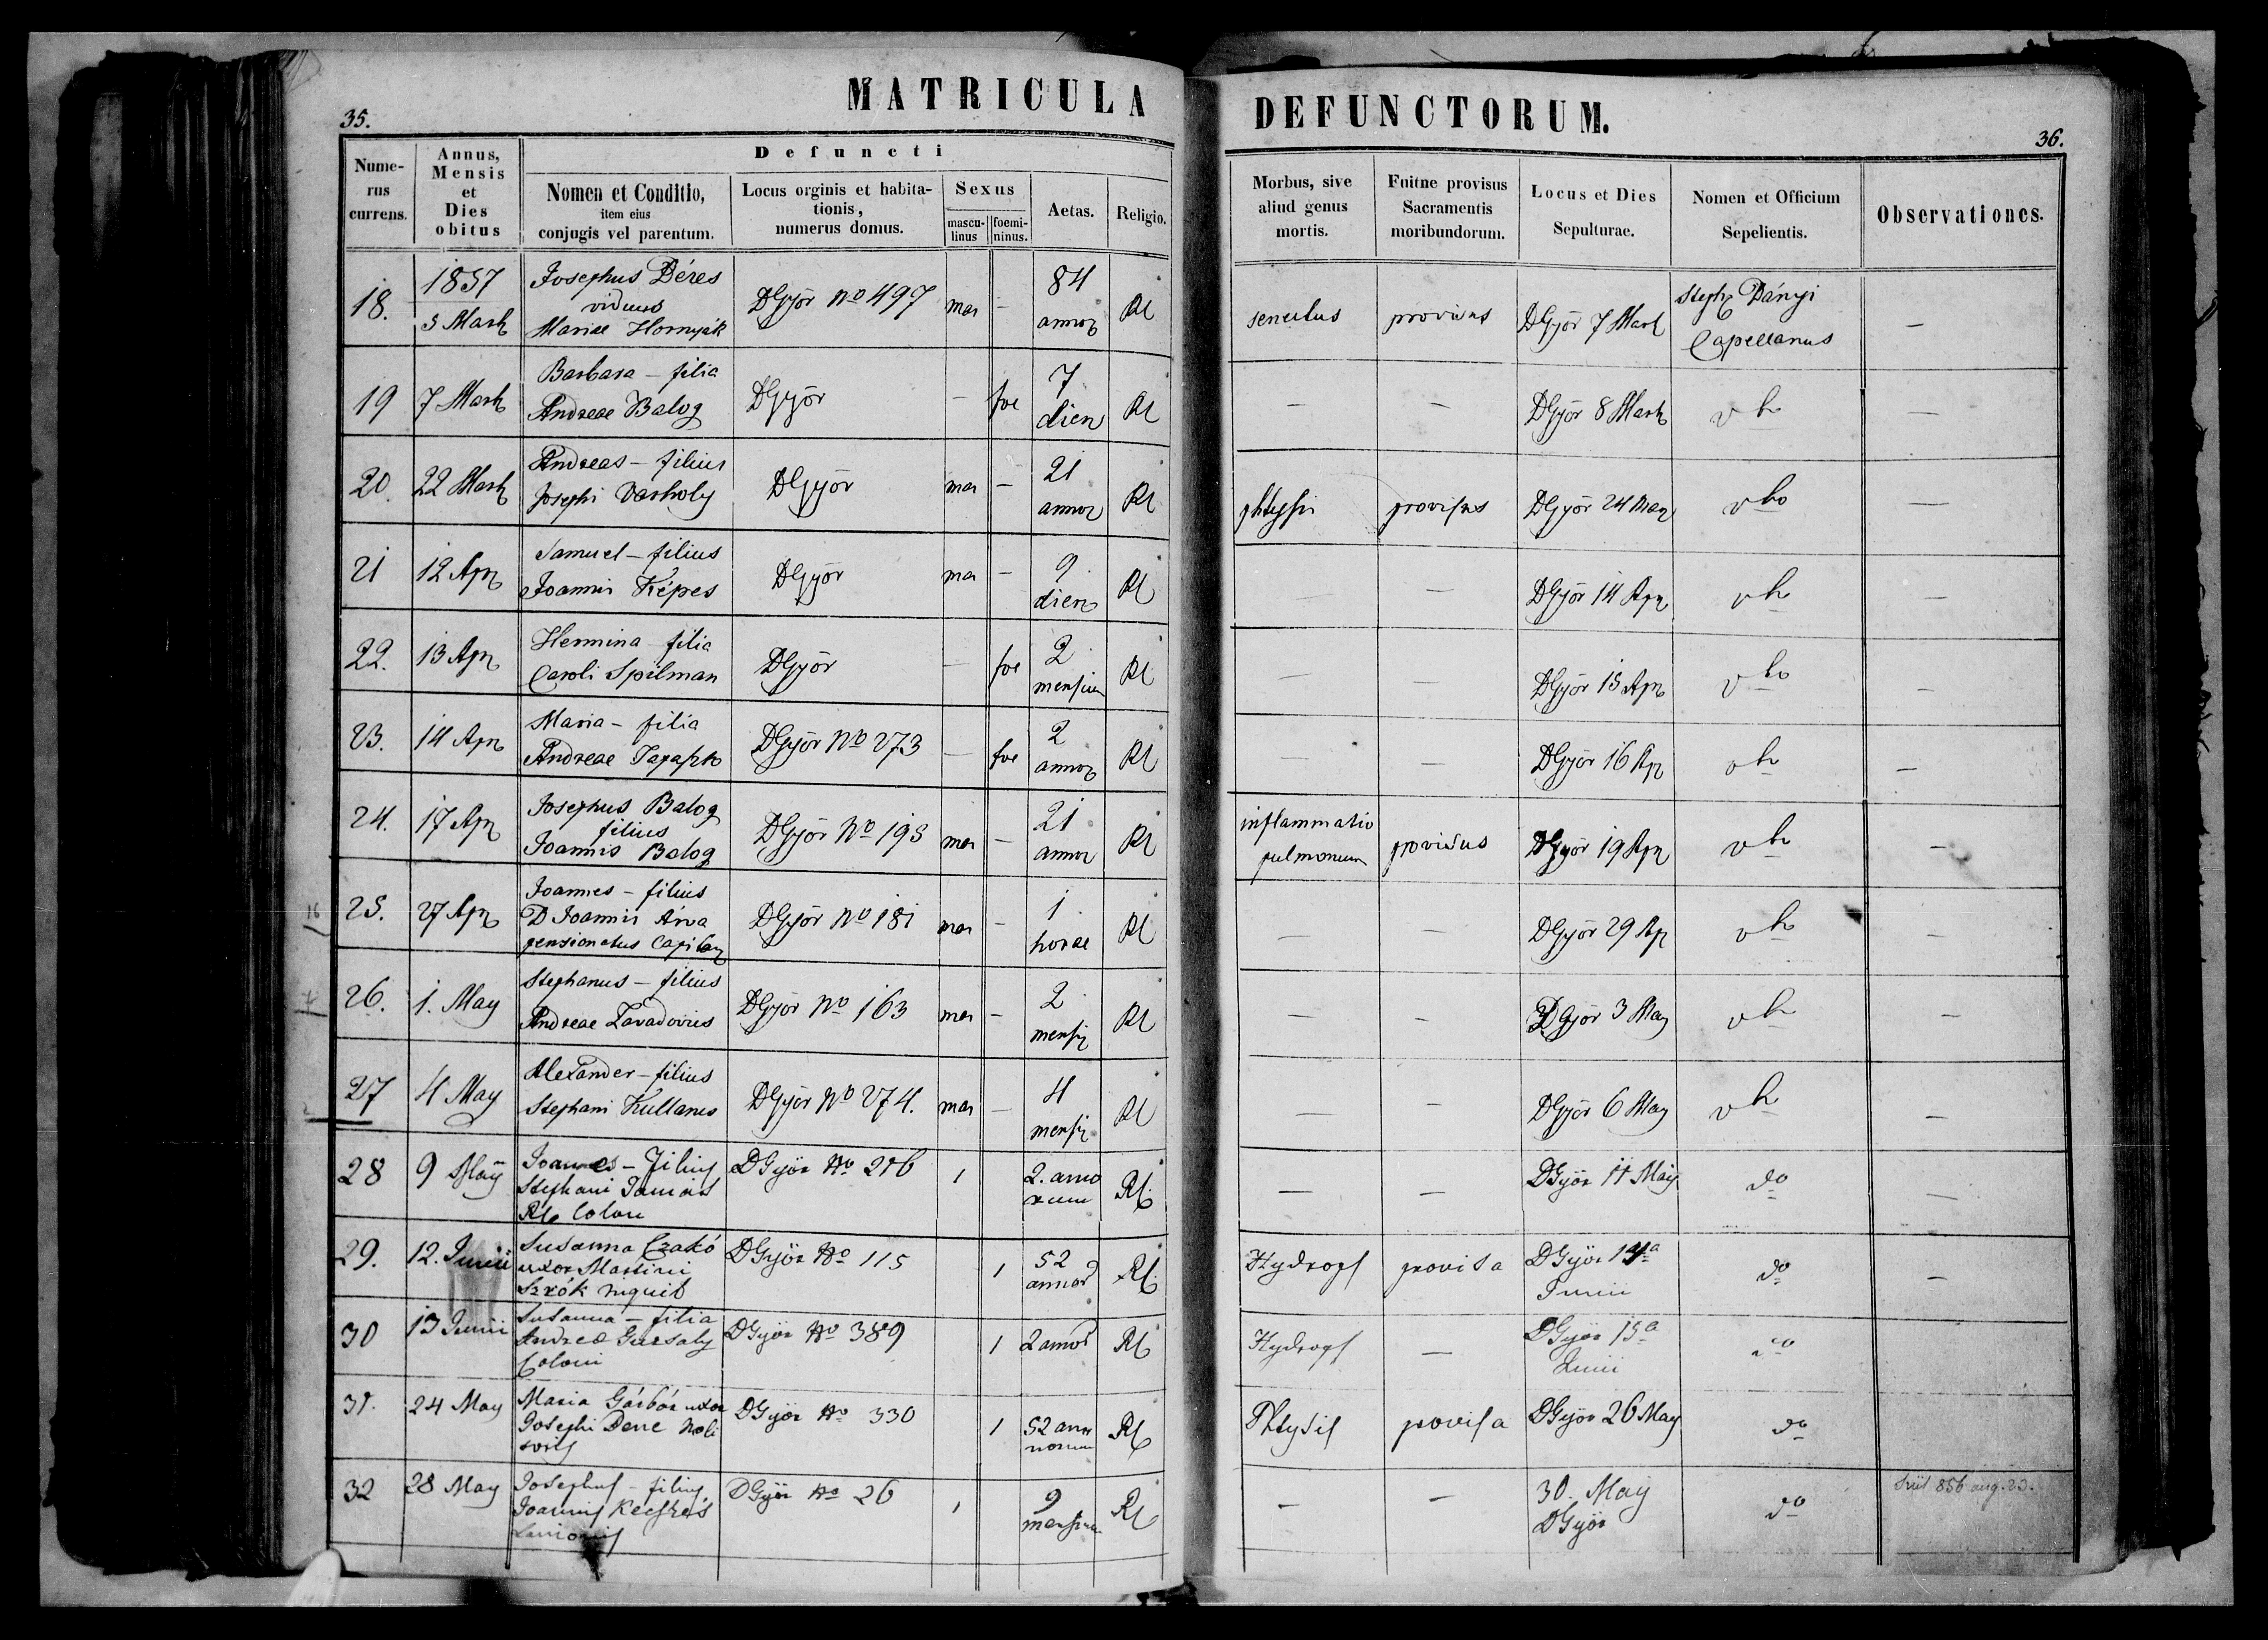 MATRICULA DEFUNCTORUM.
35.
36.
Numerus currens.
Annus, Mensis et Dies obitus
Defuncti
Nomen et Conditio, item eius conjugis vel parentum.
Locus orginis et habitationis, numerus domus.
Sexus
masculinus
foemininus.
Aetas.
Religio.
Morbus, sive aliud genus mortis.
Fuitne provisus Sacramentis moribundorum.
Locus et Dies Sepulturae.
Nomen et Officium Sepelientis.
Observationes.
18. 1857 5 Mart Josephus Béres viduus Mariae Hornyák DGyőr No 497 mas – 84 annor RC senectus provisus DGyőr 7 Mart Steph Dányi Capellanus –
19 7 Mart Barbara – filia Andreae Balog DGyőr – foe 7 dier RC – – DGyőr 8 Mart –
20. 22 Mart Andreas – filius Josephi Varholy DGyőr mas – 21 annor RC phtysis provisus DGyőr 24 Mar –
21 12 Apr Samuel – filius Joannis Képes DGyőr mas – 9 dier RC – – DGyőr 14 Apr –
22. 13 Apr Hermina – filia Caroli Spilman DGyőr – foe 2 mensium RC – – DGyőr 15 Apr –
23. 14 Apr Maria – filia Andreae DGyőr No 273 – foe 2 annor RC – – DGyőr 16 Apr –
24. 17 Apr Josephus Balog filius Joannis Balog DGyőr No 195 mas – 21 annor RC inflammatio pulmonum provisus DGyőr 19 Apr –
25. 27 Apr Joannes – filius D Joannis Árva pensionatus Capitan DGyőr No 181 mas – 1 horae RC – – DGyőr 29 Ap –
26. 1. May Stephanus – filius Andreae Zavadovics DGyőr No 163 mas – 2 mensi RC – – DGyőr 3 May –
27 4 May Alexander – filius Stephani DGyőr No 274. mas – 4 mensi RC – – DGyőr 6 May –
28 9 May Joannes – filius Stephani RC Coloni DGyőr No 216 1 2. annorum RC – – DGyőr 11 May do –
29. 12. Junii Susanna Czakó uxor Martini Szrók inquil DGyőr No 115 1 52 annor RC Hydrops provisa DGyőr 14a Junii do –
30 13 Junii Susanna – filia Andreae Coloni DGyőr No 389 1 2 annor RC Hydrops – DGyőr 15a Junii do
31. 24 May Maria Gárbár uxor Josephi DGyőr No 330 1 52 annorum RC Phtysis provisa DGyőr 26 May do
32 28 May Josephus – filius Joannis Kecskés Lanionis DGyőr No 26 1 9 mensium RC – – 30. May DGyőr do 856 aug. 23.